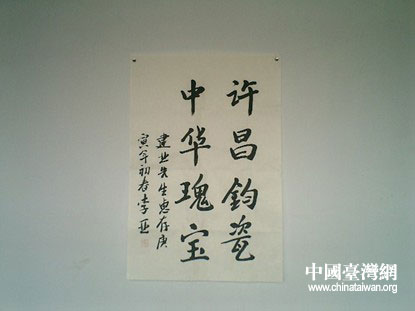 许昌钧瓷
中华瑰宝
建业先生惠存庚
寅年初春李亚
中國臺灣網
www.chinataiwan.org